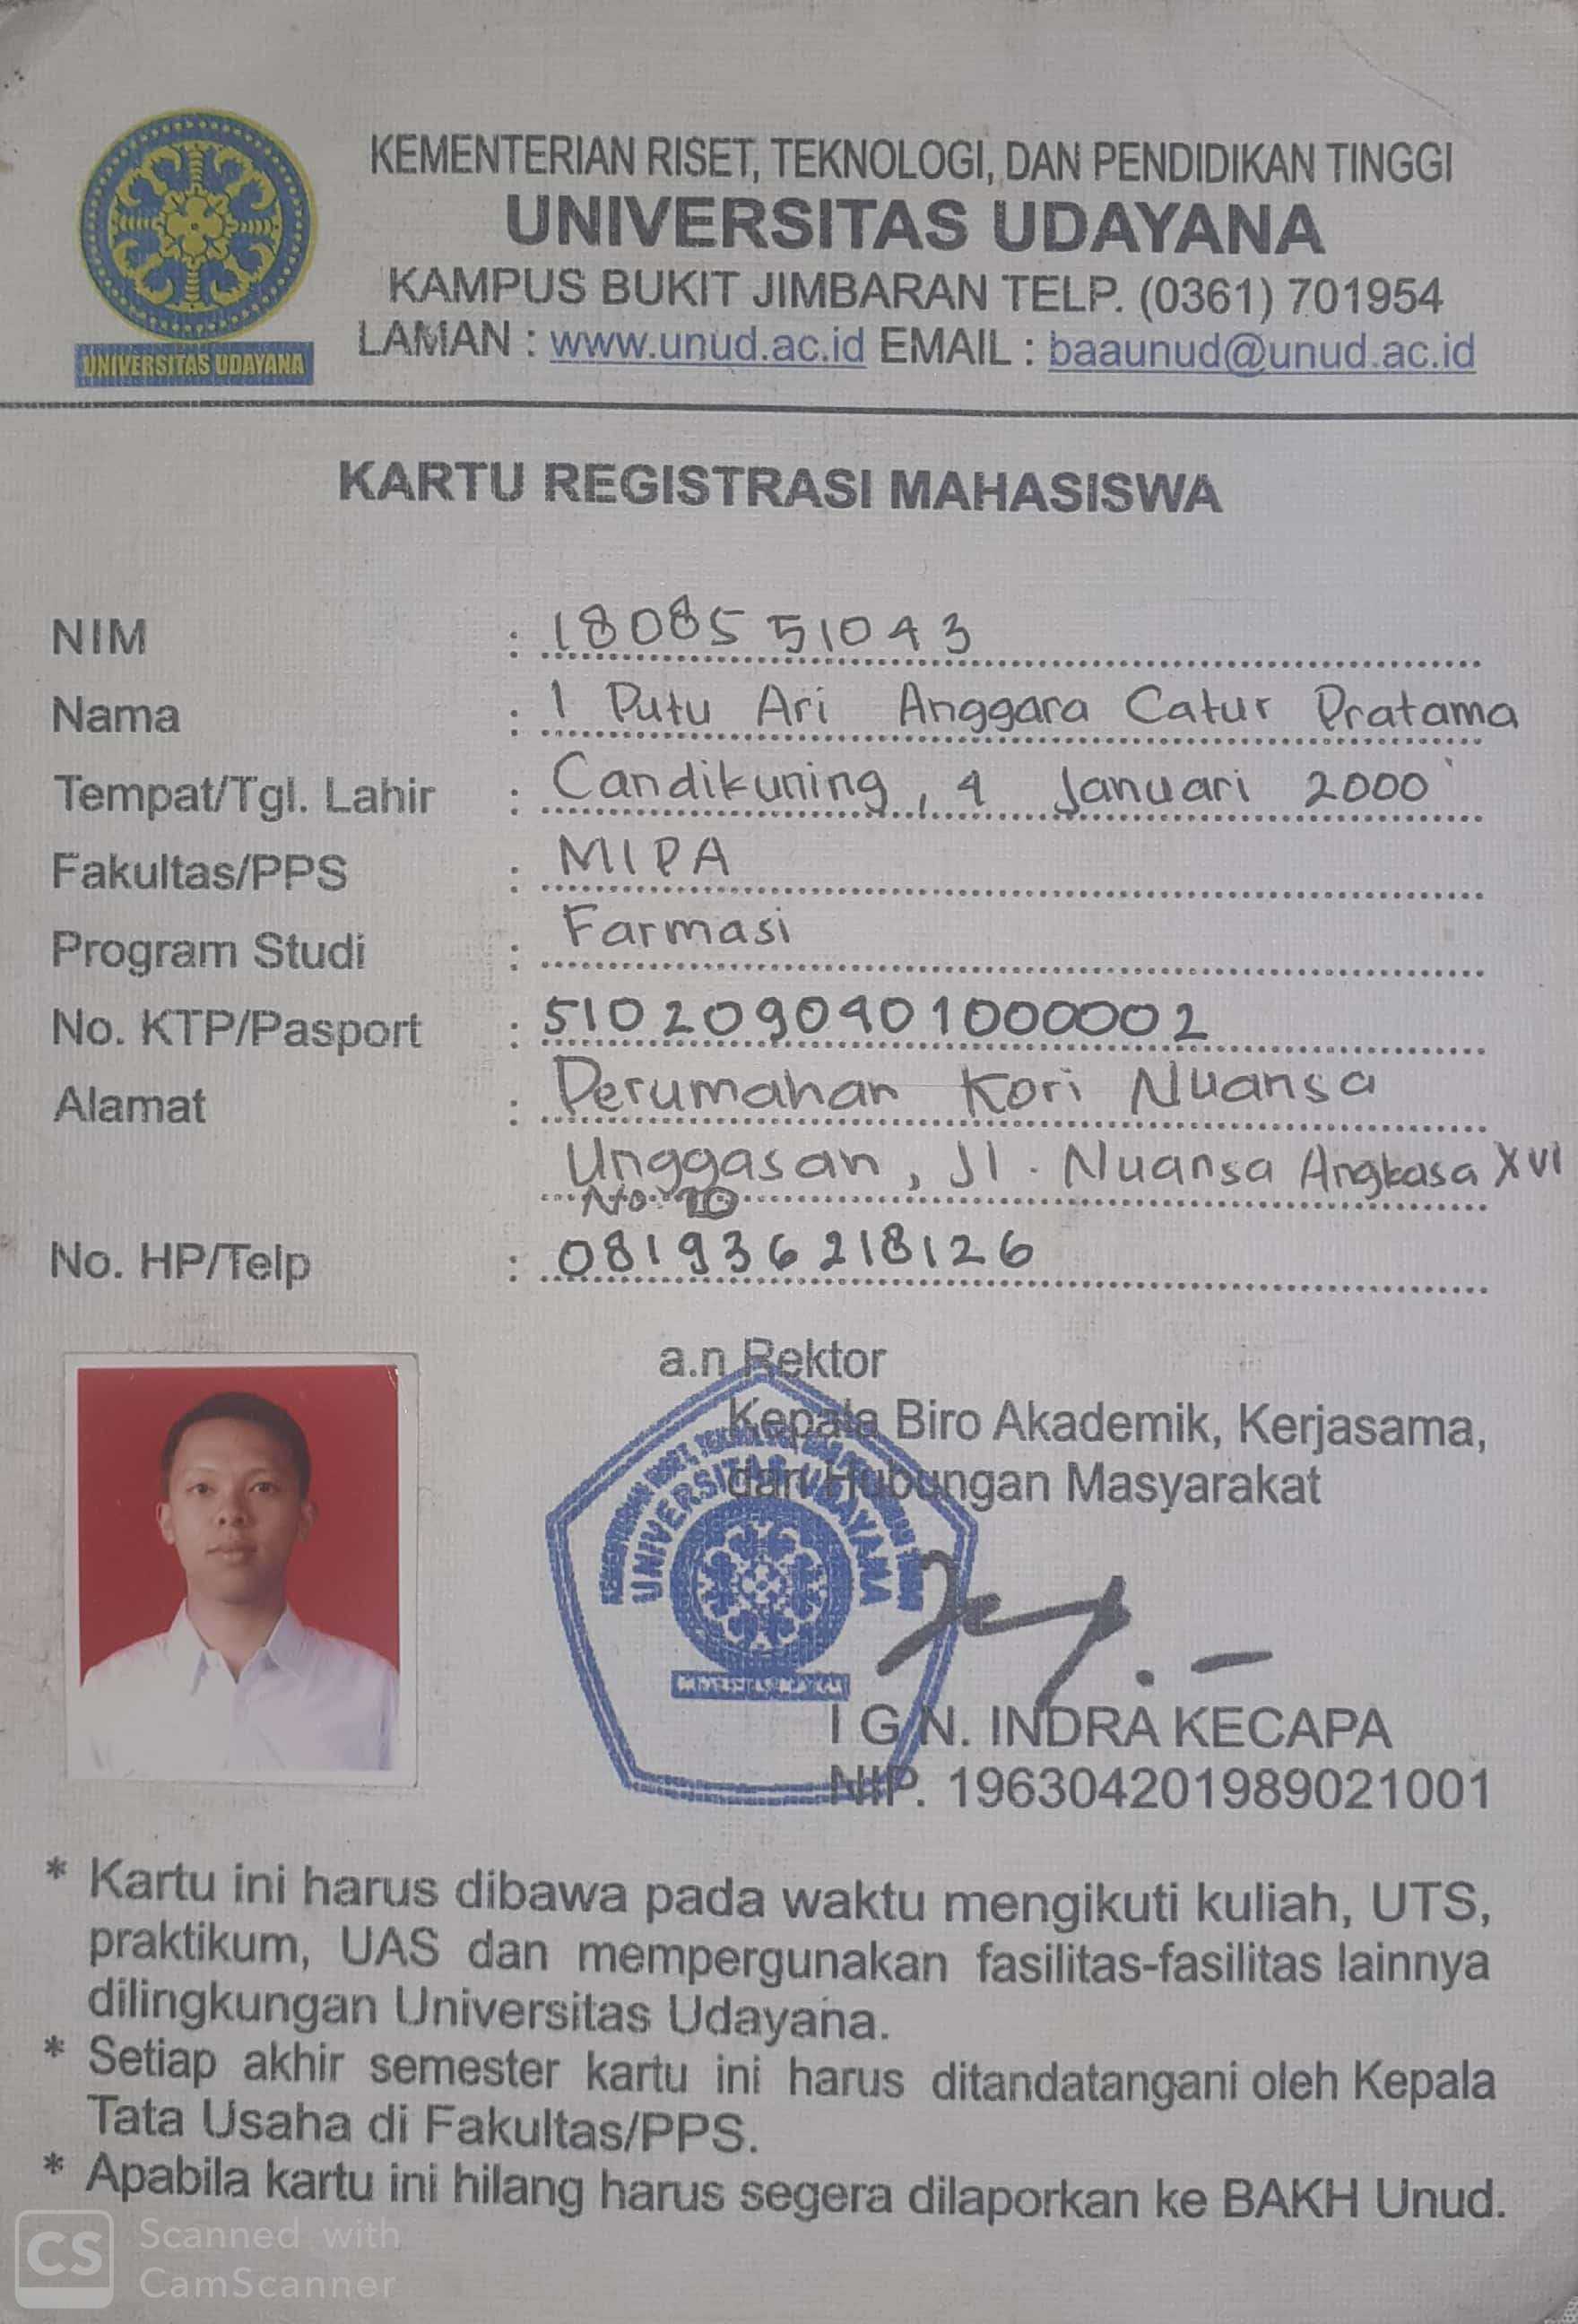 KEMENTERIAN RISET, TEKNOLOGI, DAN PENDIDIKAN TINGGI
UNIVERSITAS UDAYANA
KAMPUS BUKIT JIMBARAN TELP. (0361) 701954
LAMAN : www.unud.ac.id EMAIL : baaunud@unud.ac.id
UNIVERSITAS UDAYANA
KARTU REGISTRASI MAHASISWA
NIM : 1808551043
Nama : I Putu Ari Anggara Catur Pratama
Tempat/Tgl. Lahir : Candikuning, 4 Januari 2000
Fakultas/PPS : MIPA
Program Studi : Farmasi
No. KTP/Pasport : 5102090401000002
Alamat : Perumahan Kori Nuansa
Unggasan, Jl. Nuansa Angkasa XVI
No. 20
No. HP/Telp : 081936218126
a.n Rektor
Kepala Biro Akademik, Kerjasama,
dan Hubungan Masyarakat
UNIVERSITAS UDAYANA
I G.N. INDRA KECAPA
NIP. 196304201989021001
* Kartu ini harus dibawa pada waktu mengikuti kuliah, UTS,
praktikum, UAS dan mempergunakan fasilitas-fasilitas lainnya
dilingkungan Universitas Udayana.
* Setiap akhir semester kartu ini harus ditandatangani oleh Kepala
Tata Usaha di Fakultas/PPS.
* Apabila kartu ini hilang harus segera dilaporkan ke BAKH Unud.
CS Scanned with
CamScanner